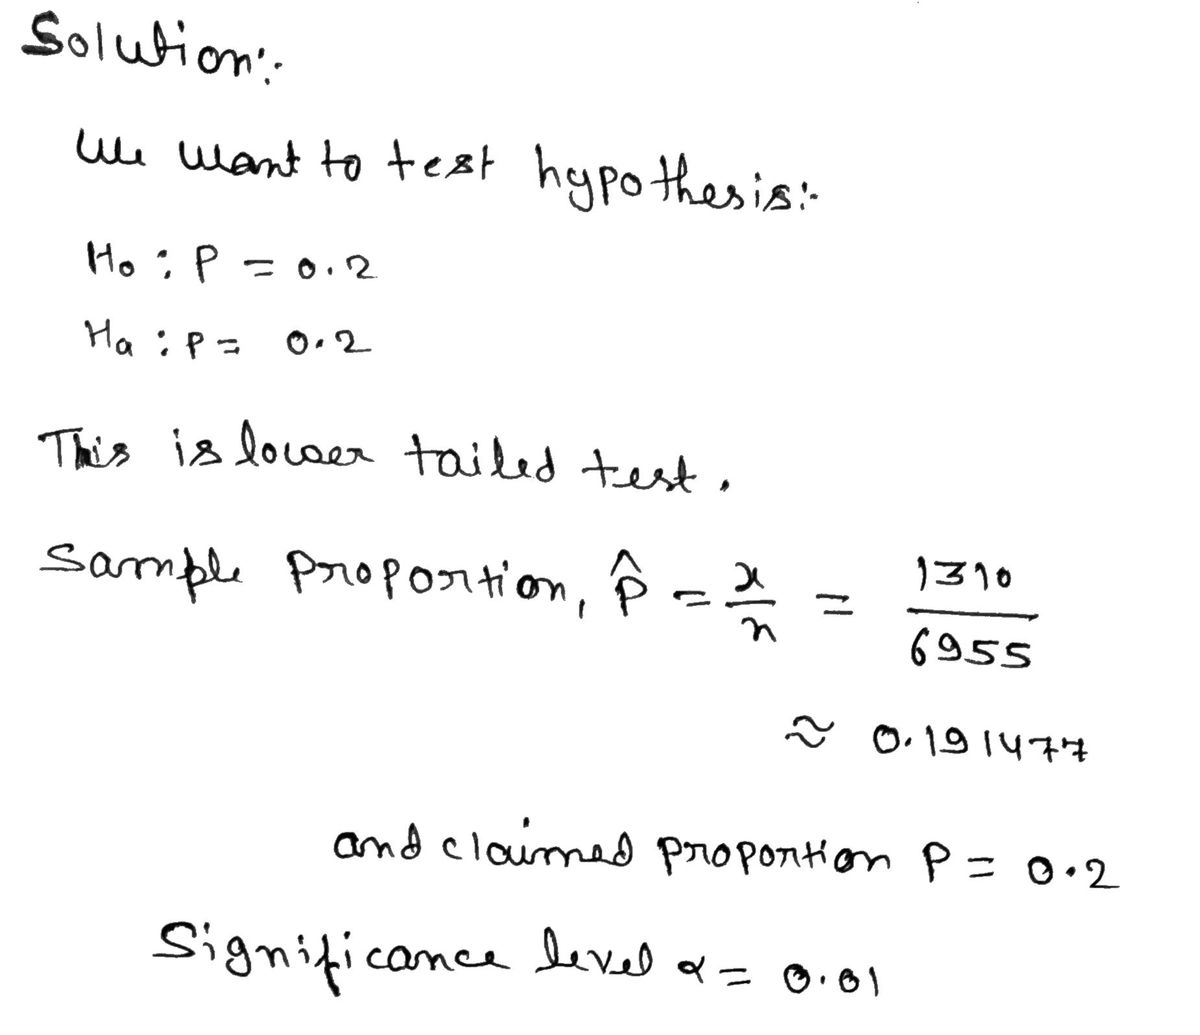 Solution:-
We want to test hypothesis:-
H₀ : P = 0.2
Hₐ : P = 0.2
This is lower tailed test.
Sample proportion, p̂ = x/n = 1310/6955
≈ 0.191477
and claimed proportion P = 0.2
Significance level α = 0.01